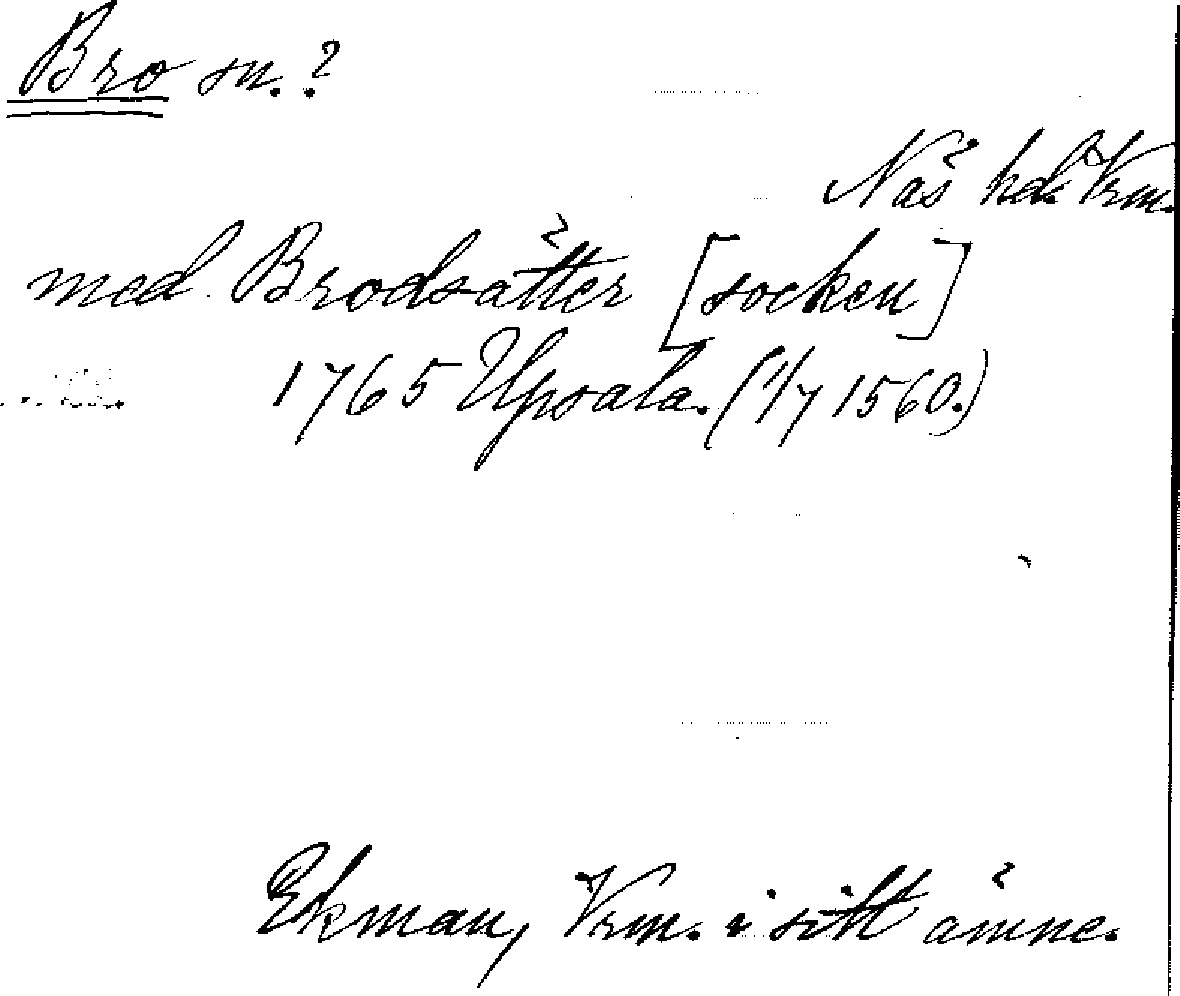 Bro sn.?
Näs hd. Vrm.
med Brodsätter [socken]
1765 Upsala. (1/7 1560.)
Ekman, Vrm. i sitt ämne.